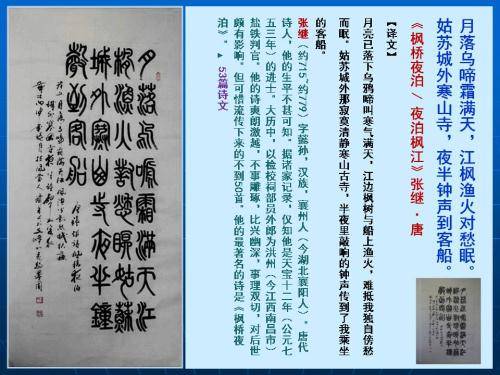 月落乌啼霜满天，江枫渔火对愁眠。
姑苏城外寒山寺，夜半钟声到客船。
《枫桥夜泊 / 夜泊枫江》张继·唐
【译文】
月亮已落下乌鸦啼叫寒气满天，江边枫树与船上渔火，难抵我独自傍愁
而眠。姑苏城外那寂寞清静寒山古寺，半夜里敲响的钟声传到了我乘坐
的客船。
张继（约715-约779）字懿孙，汉族，襄州人（今湖北襄阳人）。唐代
诗人，他的生平不甚可知。据诸家记录，仅知他是天宝十二年（公元七
五三年）的进士。大历中，以检校祠部员外郎为洪州（今江西南昌市）
盐铁判官。他的诗爽朗激越，不事雕琢，比兴幽深，事理双切，对后世
颇有影响。但可惜流传下来的不到50首。他的最著名的诗是《枫桥夜
泊》。▲ 53篇诗文
月落烏啼霜滿天江
楓漁火對愁眠姑蘇
城外寒山寺夜半鐘
聲到客船